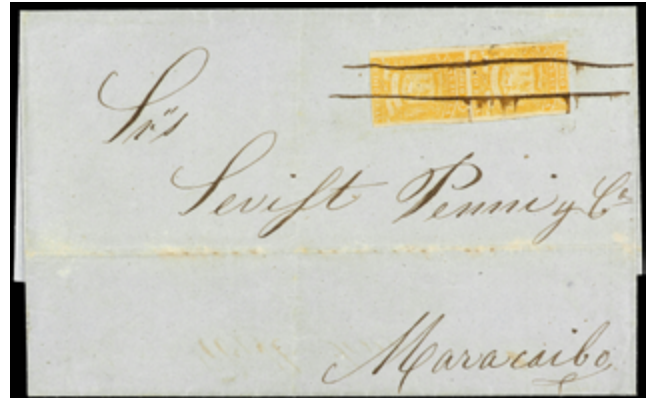 Sres
Sevift Penni y Ca
Maracaibo